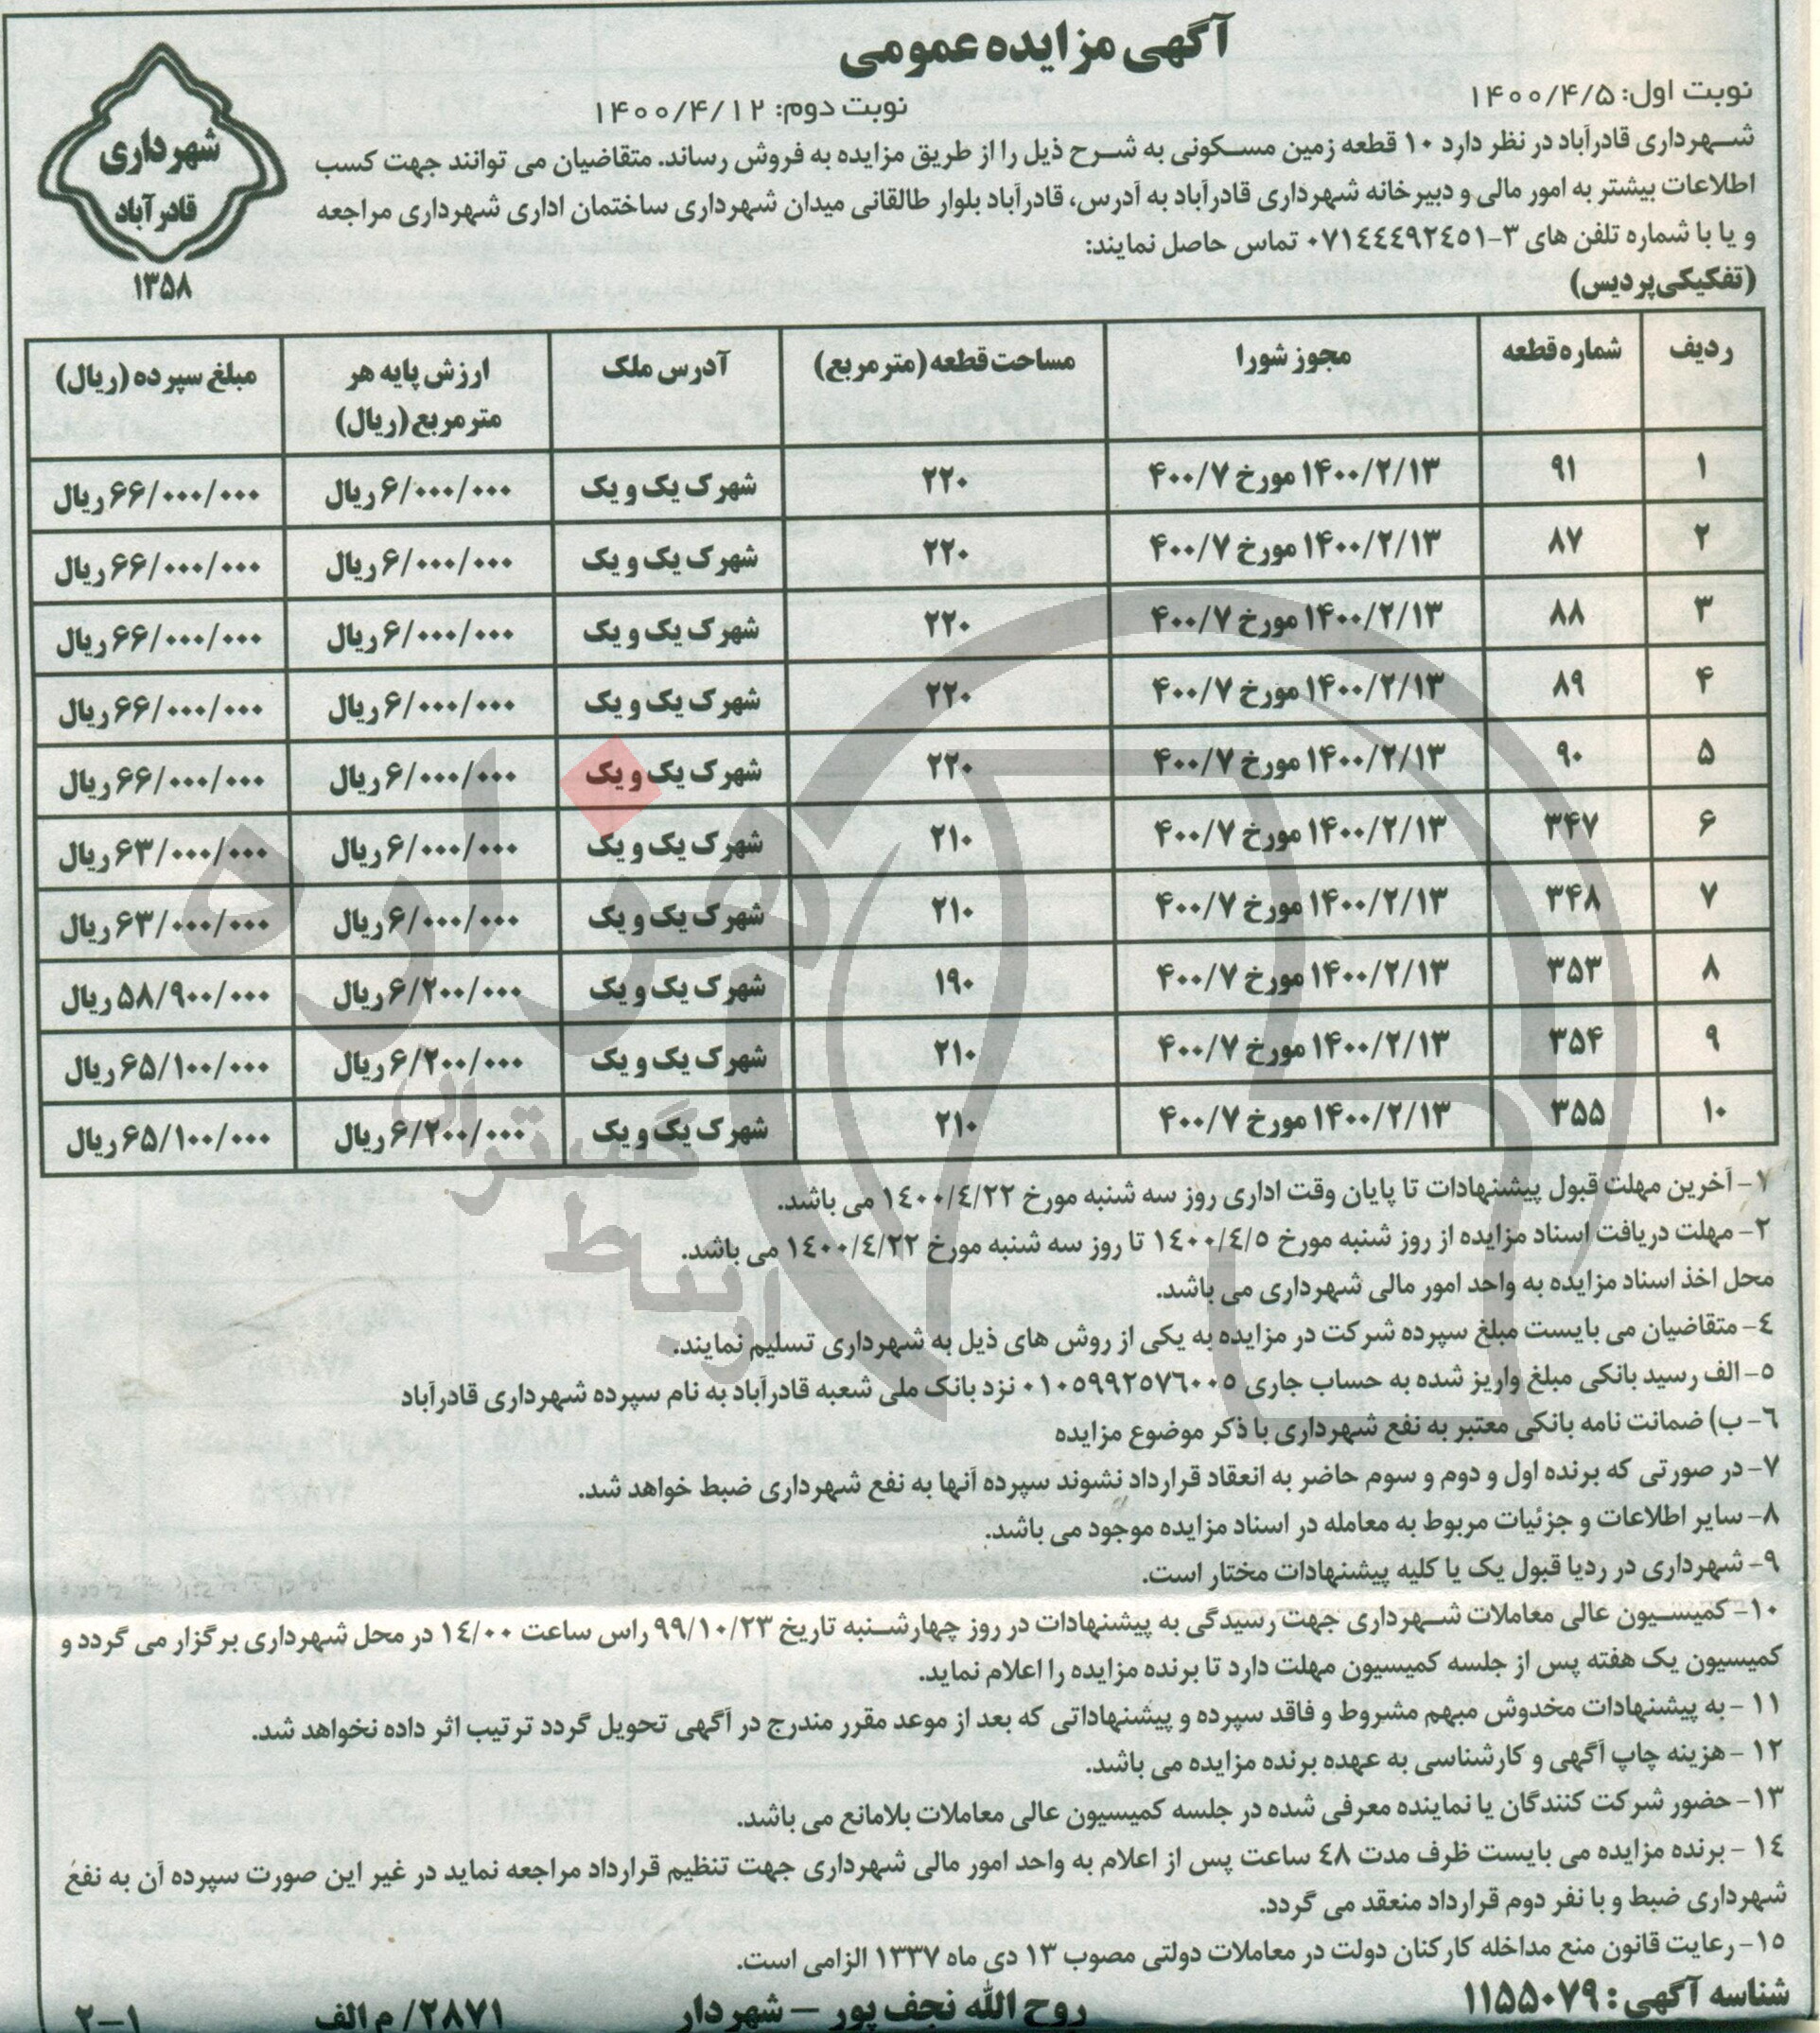 آگهی مزایده عمومی
نوبت اول: ۱۴۰۰/۴/۵
نوبت دوم: ۱۴۰۰/۴/۱۲
شهرداری
قادرآباد
۱۳۵۸
شهرداری قادرآباد در نظر دارد ۱۰ قطعه زمین مسکونی به شرح ذیل را از طریق مزایده به فروش رساند. متقاضیان می توانند جهت کسب
اطلاعات بیشتر به امور مالی و دبیرخانه شهرداری قادرآباد به آدرس، قادرآباد بلوار طالقانی میدان شهرداری ساختمان اداری شهرداری مراجعه
و یا با شماره تلفن های ۳-۰۷۱٤٤٤۹۲٤٥۱ تماس حاصل نمایند:
(تفکیکی پردیس)
ردیف شماره قطعه مجوز شورا مساحت قطعه (متر مربع) آدرس ملک ارزش پایه هر مبلغ سپرده (ریال)
متر مربع (ریال)
۱ ۹۱ ۱۴۰۰/۲/۱۳ مورخ ۴۰۰/۷ ۲۲۰ شهرک یک و یک ۶/۰۰۰/۰۰۰ ریال ۶۶/۰۰۰/۰۰۰ ریال
۲ ۸۷ ۱۴۰۰/۲/۱۳ مورخ ۴۰۰/۷ ۲۲۰ شهرک یک و یک ۶/۰۰۰/۰۰۰ ریال ۶۶/۰۰۰/۰۰۰ ریال
۳ ۸۸ ۱۴۰۰/۲/۱۳ مورخ ۴۰۰/۷ ۲۲۰ شهرک یک و یک ۶/۰۰۰/۰۰۰ ریال ۶۶/۰۰۰/۰۰۰ ریال
۴ ۸۹ ۱۴۰۰/۲/۱۳ مورخ ۴۰۰/۷ ۲۲۰ شهرک یک و یک ۶/۰۰۰/۰۰۰ ریال ۶۶/۰۰۰/۰۰۰ ریال
۵ ۹۰ ۱۴۰۰/۲/۱۳ مورخ ۴۰۰/۷ ۲۲۰ شهرک یک و یک ۶/۰۰۰/۰۰۰ ریال ۶۶/۰۰۰/۰۰۰ ریال
۶ ۳۴۷ ۱۴۰۰/۲/۱۳ مورخ ۴۰۰/۷ ۲۱۰ شهرک یک و یک ۶/۰۰۰/۰۰۰ ریال ۶۳/۰۰۰/۰۰۰ ریال
۷ ۳۴۸ ۱۴۰۰/۲/۱۳ مورخ ۴۰۰/۷ ۲۱۰ شهرک یک و یک ۶/۰۰۰/۰۰۰ ریال ۶۳/۰۰۰/۰۰۰ ریال
۸ ۳۵۳ ۱۴۰۰/۲/۱۳ مورخ ۴۰۰/۷ ۱۹۰ شهرک یک و یک ۶/۲۰۰/۰۰۰ ریال ۵۸/۹۰۰/۰۰۰ ریال
۹ ۳۵۴ ۱۴۰۰/۲/۱۳ مورخ ۴۰۰/۷ ۲۱۰ شهرک یک و یک ۶/۲۰۰/۰۰۰ ریال ۶۵/۱۰۰/۰۰۰ ریال
۱۰ ۳۵۵ ۱۴۰۰/۲/۱۳ مورخ ۴۰۰/۷ ۲۱۰ شهرک یک و یک ۶/۲۰۰/۰۰۰ ریال ۶۵/۱۰۰/۰۰۰ ریال
هزاره
گستران
ارتباط
۷- آخرین مهلت قبول پیشنهادات تا پایان وقت اداری روز سه شنبه مورخ ۱٤۰۰/٤/۲۲ می باشد.
۲- مهلت دریافت اسناد مزایده از روز شنبه مورخ ۱٤۰۰/٤/٥ تا روز سه شنبه مورخ ۱٤۰۰/٤/۲۲ می باشد.
محل اخذ اسناد مزایده به واحد امور مالی شهرداری می باشد.
٤- متقاضیان می بایست مبلغ سپرده شرکت در مزایده به یکی از روش های ذیل به شهرداری تسلیم نمایند.
٥- الف رسید بانکی مبلغ واریز شده به حساب جاری ۰۱۰٥۹۹۲٥۷٦۰۰٥ نزد بانک ملی شعبه قادرآباد به نام سپرده شهرداری قادرآباد
٦- ب) ضمانت نامه بانکی معتبر به نفع شهرداری با ذکر موضوع مزایده
۷- در صورتی که برنده اول و دوم و سوم حاضر به انعقاد قرارداد نشوند سپرده آنها به نفع شهرداری ضبط خواهد شد.
۸- سایر اطلاعات و جزئیات مربوط به معامله در اسناد مزایده موجود می باشد.
۹- شهرداری در ردیا قبول یک یا کلیه پیشنهادات مختار است.
۱۰- کمیسیون عالی معاملات شهرداری جهت رسیدگی به پیشنهادات در روز چهارشنبه تاریخ ۹۹/۱۰/۲۳ راس ساعت ۱٤/۰۰ در محل شهرداری برگزار می گردد و
کمیسیون یک هفته پس از جلسه کمیسیون مهلت دارد تا برنده مزایده را اعلام نماید.
۱۱- به پیشنهادات مخدوش مبهم مشروط و فاقد سپرده و پیشنهاداتی که بعد از موعد مقرر مندرج در آگهی تحویل گردد ترتیب اثر داده نخواهد شد.
۱۲- هزینه چاپ آگهی و کارشناسی به عهده برنده مزایده می باشد.
۱۳- حضور شرکت کنندگان یا نماینده معرفی شده در جلسه کمیسیون عالی معاملات بلامانع می باشد.
۱٤- برنده مزایده می بایست ظرف مدت ٤۸ ساعت پس از اعلام به واحد امور مالی شهرداری جهت تنظیم قرارداد مراجعه نماید در غیر این صورت سپرده آن به نفع
شهرداری ضبط و با نفر دوم قرارداد منعقد می گردد.
۱٥- رعایت قانون منع مداخله کارکنان دولت در معاملات دولتی مصوب ۱۳ دی ماه ۱۳۳۷ الزامی است.
شناسه آگهی: ۱۱۵۵۰۷۹
روح الله نجف پور – شهردار
۲۸۷۱/ م الف
۲-۱